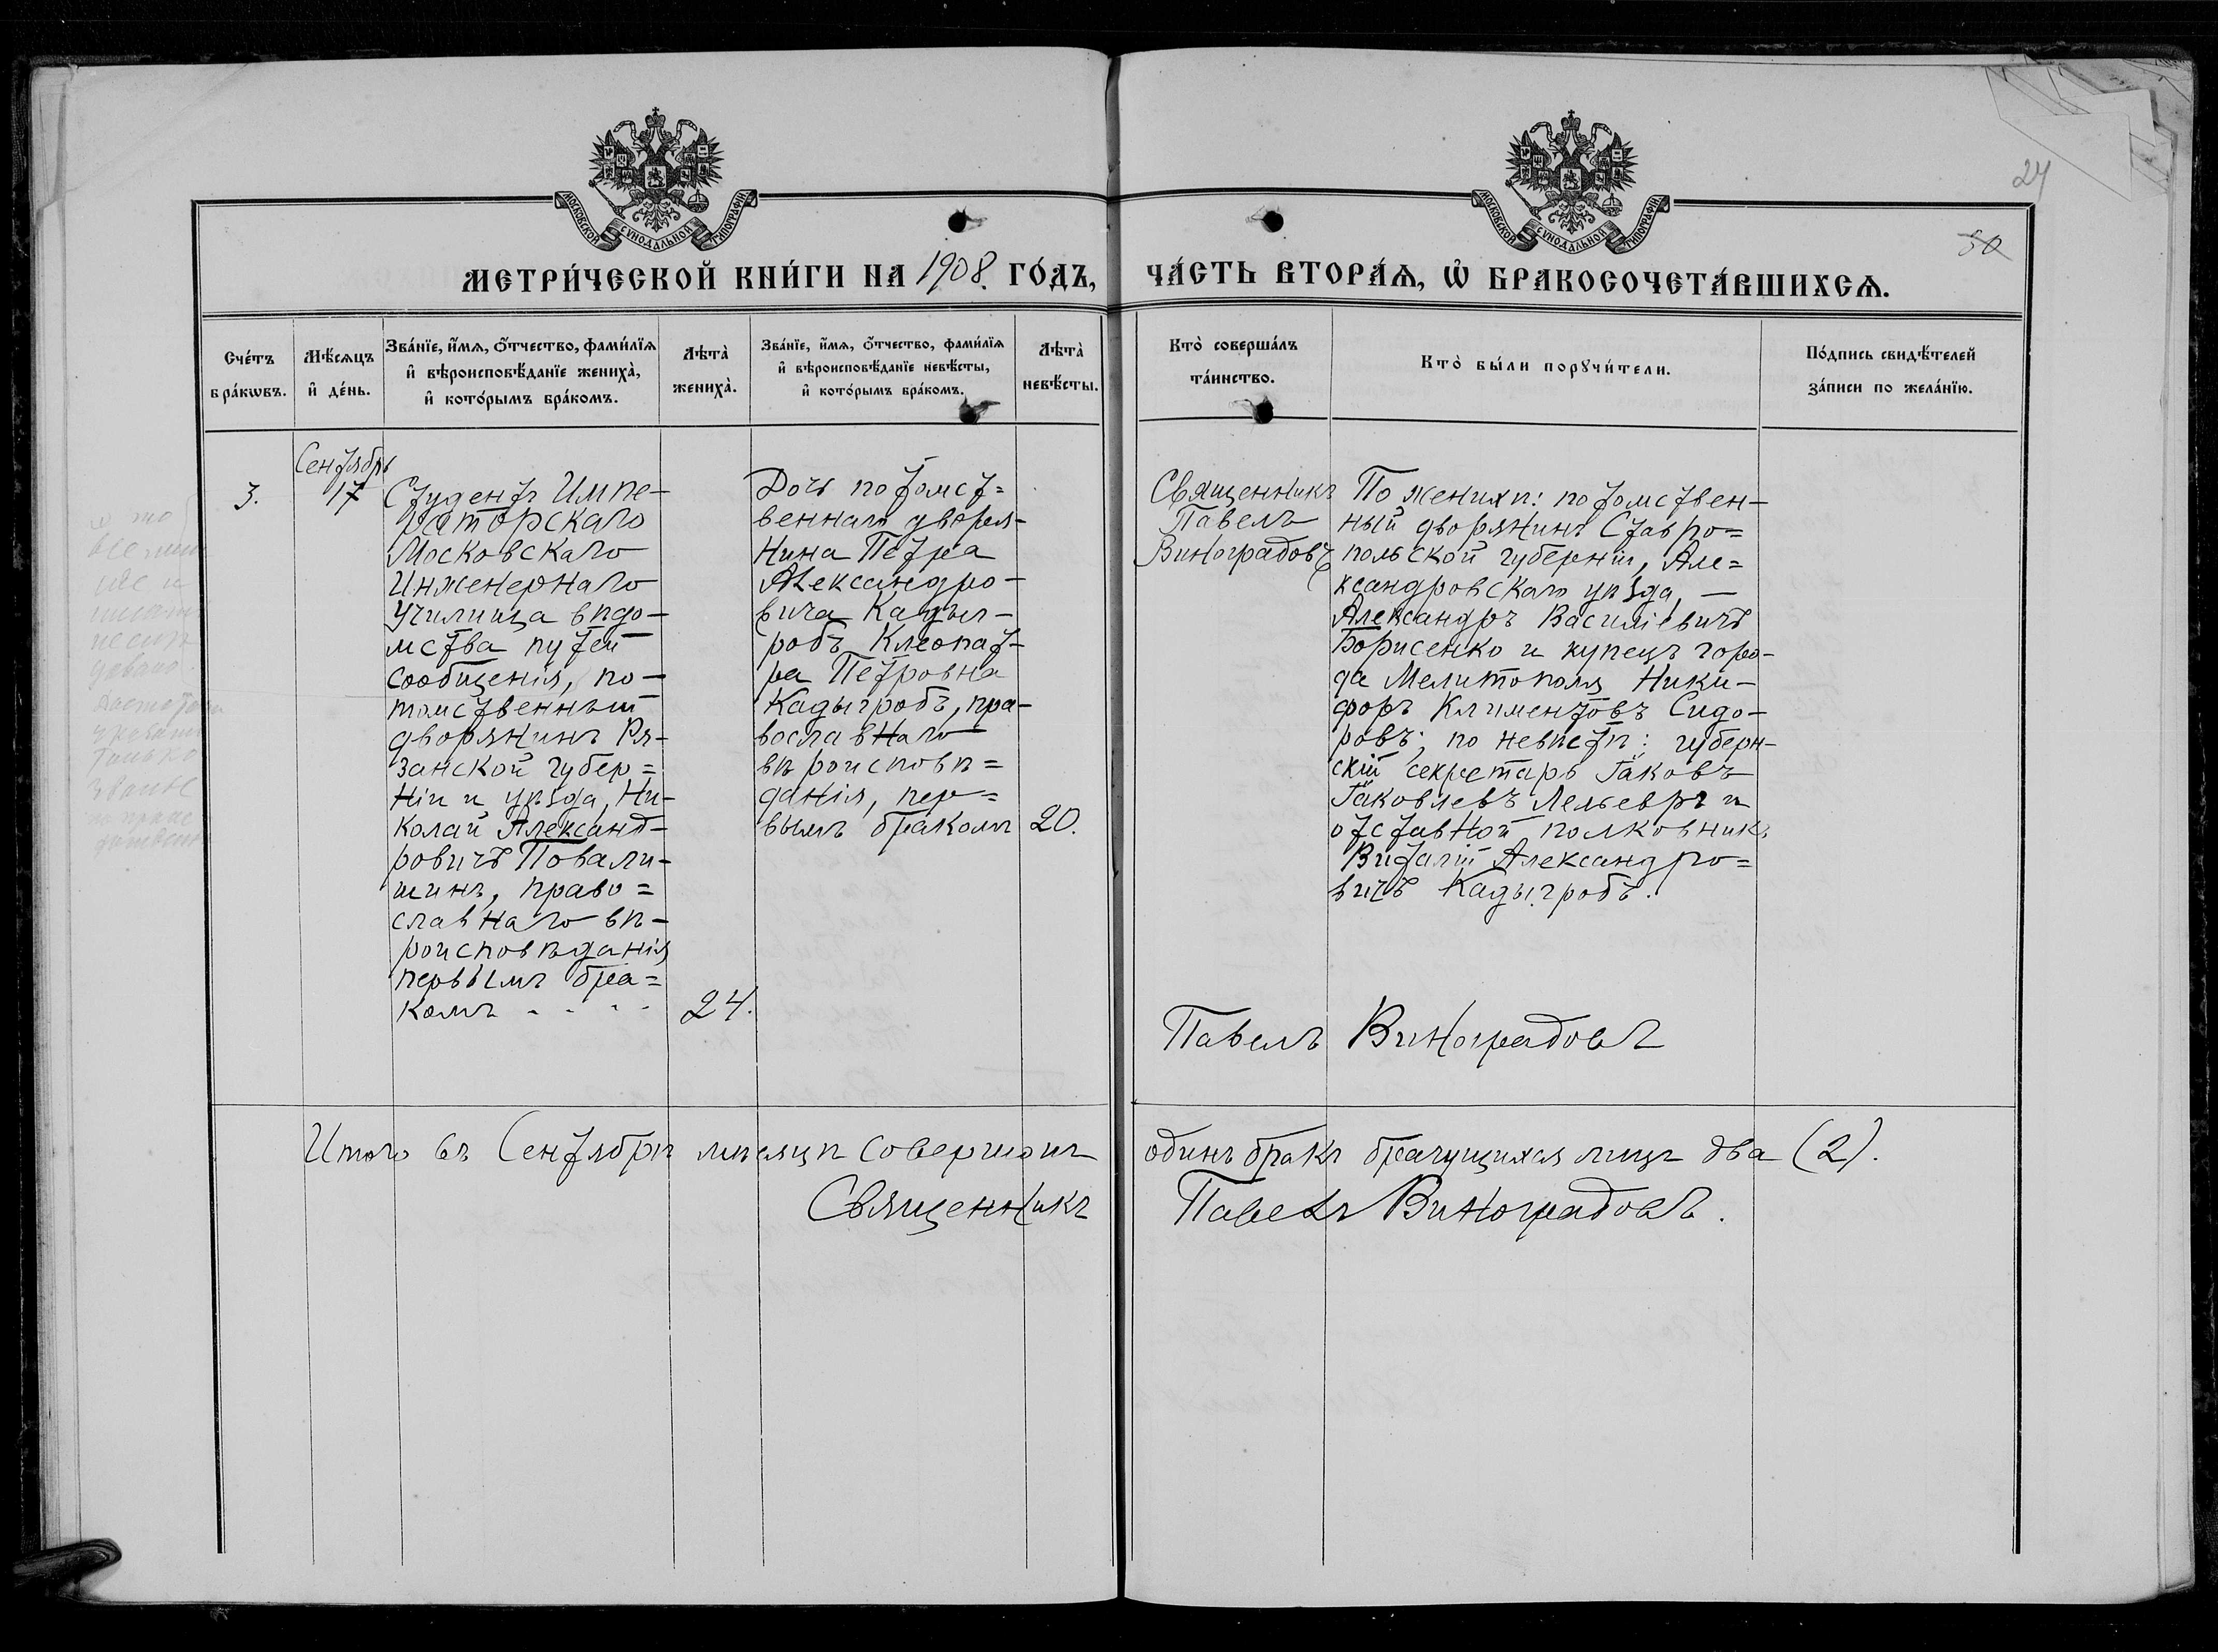 МОСКОВСКОЙ СѴНОДАЛЬНОЙ ТИПОГРАФІИ
МОСКОВСКОЙ СѴНОДАЛЬНОЙ ТИПОГРАФІИ
24
50
МЕТРИ́ЧЕСКОЙ КНИ́ГИ НА 1908. ГО́ДЪ,
ЧА́СТЬ ВТОРА́Ѧ, Ѡ҆ БРАКОСОЧЕТА́ВШИХСѦ.
Сче́тъ
бра́кѡвъ.
Мѣ́сѧцъ
и҆ де́нь.
Зва́нїе, и҆́мѧ, ѻ҆́тчество, фами́лїѧ
и҆ вѣроисповѣ́данїе жениха̀,
и҆ кото́рымъ бра́комъ.
Лѣта̀
жениха̀.
Зва́нїе, и҆́мѧ, ѻ҆́тчество, фами́лїѧ
и҆ вѣроисповѣ́данїе невѣ́сты,
и҆ кото́рымъ бра́комъ.
Лѣта̀
невѣ́сты.
Кто̀ соверша́лъ
та́инство.
Кто̀ бы́ли порꙋчи́тели.
По́дпись свидѣ́телей
за́писи по жела́нїю.
3.
Сентябрь
17
Студентъ Импе-
раторскаго
Московскаго
Инженернаго
Училища вѣдо-
мства путей
сообщенія, по-
томственный
дворянинъ Ря-
занской губер=
ніи и уѣзда, Ни-
колай Александ-
ровичъ Повали-
шинъ, право=
славнаго вѣ-
роисповѣданія
первымъ бра=
комъ
24.
Дочь потомст=
веннаго дворя-
нина Петра
Александро-
вича Кадыг-
робъ Клеопат-
ра Петровна
Кадыгробъ, пра-
вославнаго
вѣроисповѣ=
данія, пер=
вымъ бракомъ
20.
Священникъ
Павелъ
Виноградовъ
По женихѣ: потомствен-
ный дворянинъ Ставро=
польской губерніи, Але=
ксандровскаго уѣзда, —
Александръ Василіевичъ
Борисенко и купецъ горо-
да Мелитополя Ники-
форъ Климентовъ Сидо-
ровъ; по невѣстѣ: губерн-
скій секретарь Іаковъ
Іаковлевъ Лельевръ и
отставной полковникъ
Виталій Александро=
вичъ Кадыгробъ.
Павелъ Виноградовъ
Итого въ Сентябрѣ мѣсяцѣ совершонъ
одинъ бракъ брачущихся лицъ два (2).
Священникъ
Павелъ Виноградовъ.